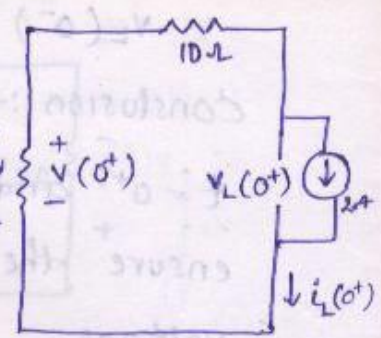 10Ω
+
v(0⁺)
-
v_L(0⁺)
2A
↓ i_L(0⁺)